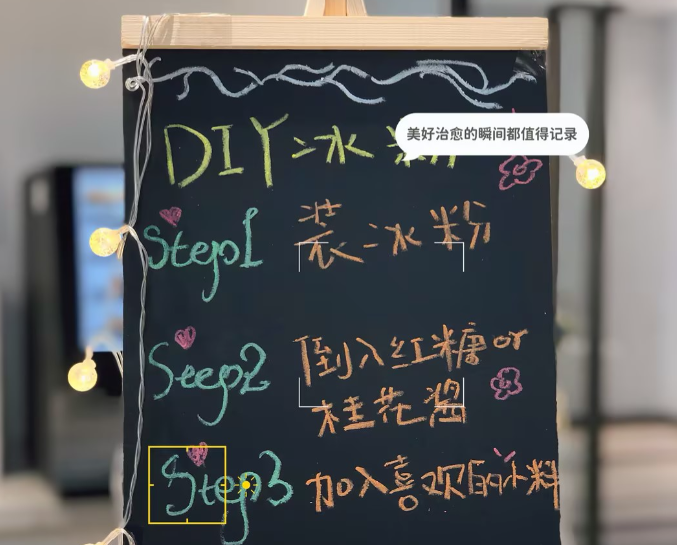 DIY冰粉
美好治愈的瞬间都值得记录
Step1 装冰粉
Step2 倒入红糖or
桂花酱
Step3 加入喜欢的小料